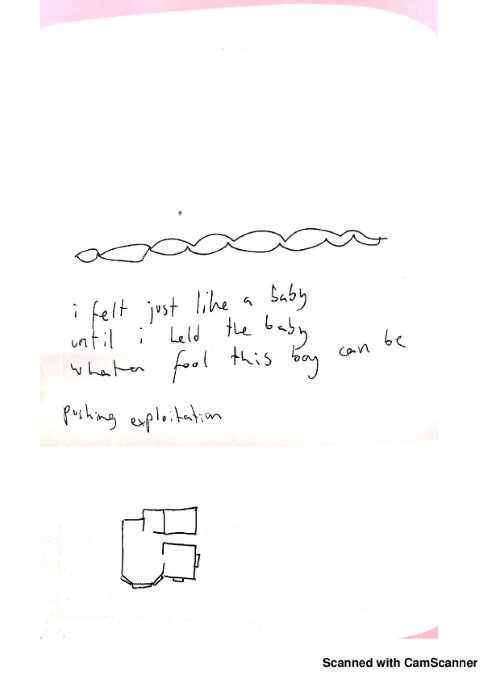 i felt just like a baby
until i held the baby
what a fool this boy can be
pushing exploitation
Scanned with CamScanner